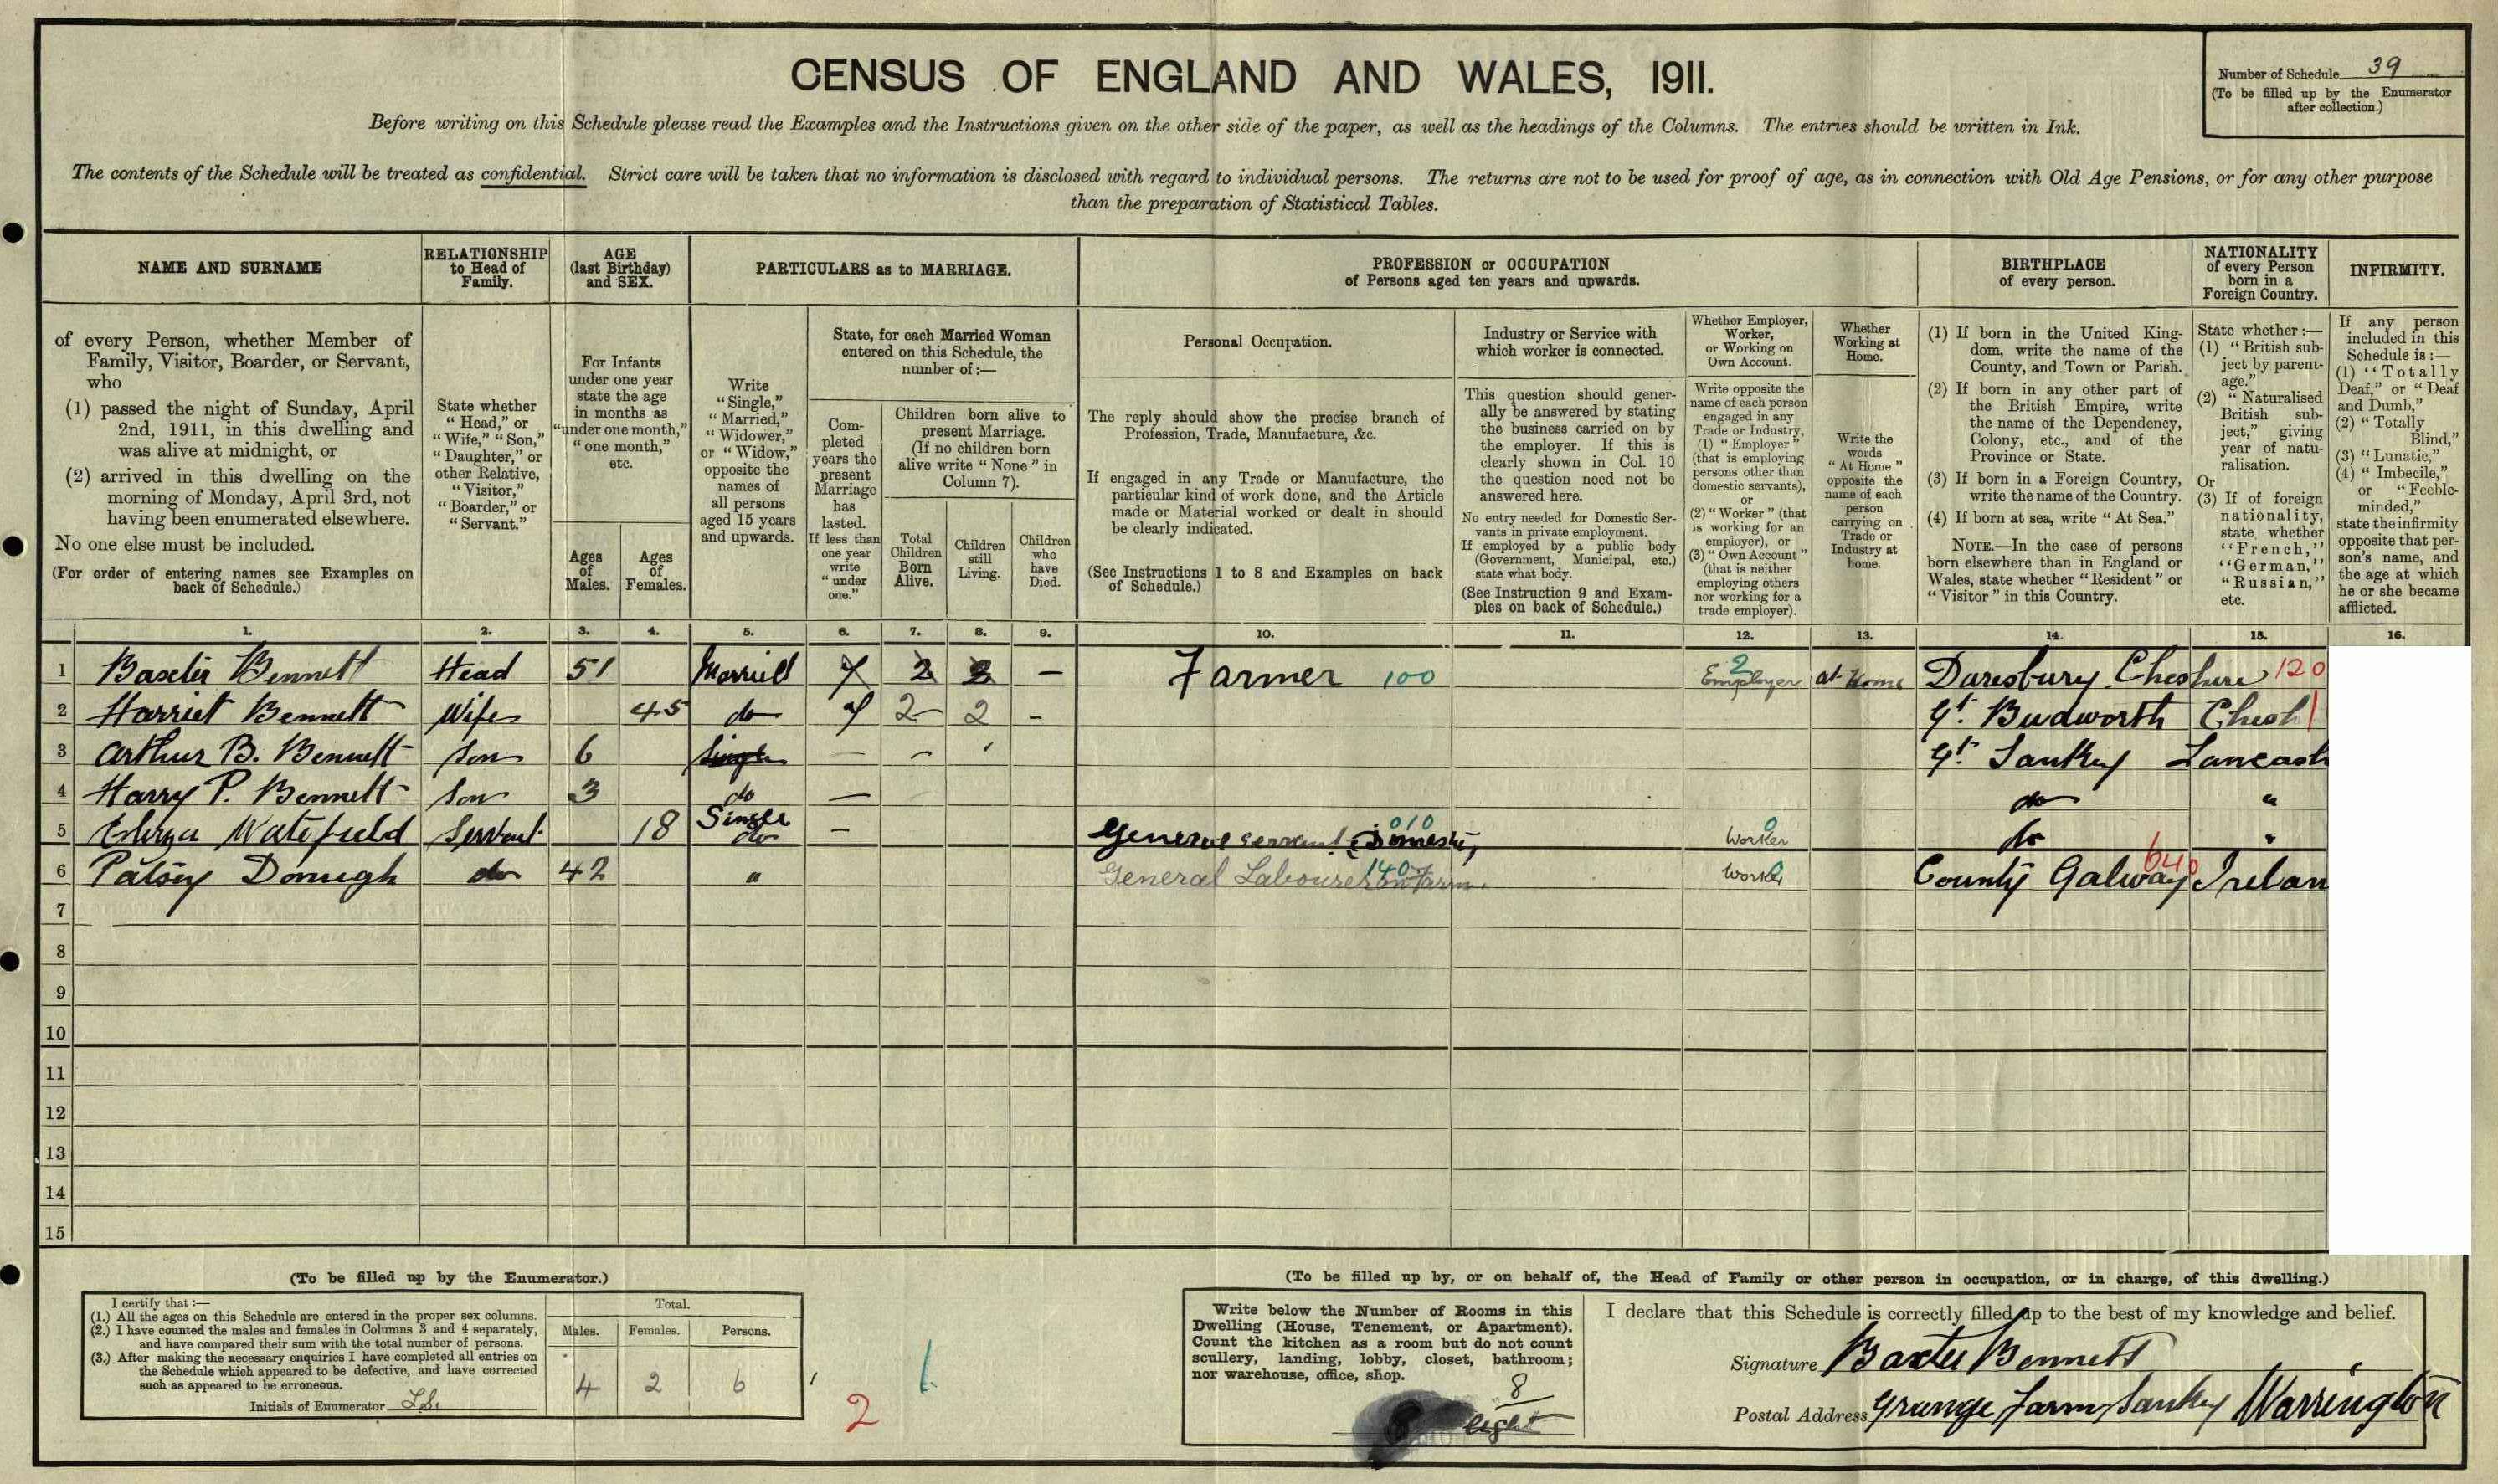 CENSUS OF ENGLAND AND WALES, 1911.
Number of Schedule 39
(To be filled up by the Enumerator
after collection.)
Before writing on this Schedule please read the Examples and the Instructions given on the other side of the paper, as well as the headings of the Columns. The entries should be written in Ink.
The contents of the Schedule will be treated as confidential. Strict care will be taken that no information is disclosed with regard to individual persons. The returns are not to be used for proof of age, as in connection with Old Age Pensions, or for any other purpose
than the preparation of Statistical Tables.
NAME AND SURNAME
of every Person, whether Member of
Family, Visitor, Boarder, or Servant,
who
(1) passed the night of Sunday, April
2nd, 1911, in this dwelling and
was alive at midnight, or
(2) arrived in this dwelling on the
morning of Monday, April 3rd, not
having been enumerated elsewhere.
No one else must be included.
(For order of entering names see Examples on
back of Schedule.)
RELATIONSHIP
to Head of
Family.
State whether
"Head," or
"Wife," "Son,"
"Daughter," or
other Relative,
"Visitor,"
"Boarder," or
"Servant."
AGE
(last Birthday)
and SEX.
For Infants
under one year
state the age
in months as
"under one month,"
"one month,"
etc.
Ages
of
Males.
Ages
of
Females.
PARTICULARS as to MARRIAGE.
Write
"Single,"
"Married,"
"Widower,"
or "Widow,"
opposite the
names of
all persons
aged 15 years
and upwards.
State, for each Married Woman
entered on this Schedule, the
number of:—
Com-
pleted
years the
present
Marriage
has
lasted.
If less than
one year
write
"under
one."
Children born alive to
present Marriage.
(If no children born
alive write "None" in
Column 7).
Total
Children
Born
Alive.
Children
still
Living.
Children
who
have
Died.
PROFESSION or OCCUPATION
of Persons aged ten years and upwards.
Personal Occupation.
The reply should show the precise branch of
Profession, Trade, Manufacture, &c.
If engaged in any Trade or Manufacture, the
particular kind of work done, and the Article
made or Material worked or dealt in should
be clearly indicated.
(See Instructions 1 to 8 and Examples on back
of Schedule.)
Industry or Service with
which worker is connected.
This question should gener-
ally be answered by stating
the business carried on by
the employer. If this is
clearly shown in Col. 10
the question need not be
answered here.
No entry needed for Domestic Ser-
vants in private employment.
If employed by a public body
(Government, Municipal, etc.)
state what body.
(See Instruction 9 and Exam-
ples on back of Schedule.)
Whether Employer,
Worker,
or Working on
Own Account.
Write opposite the
name of each person
engaged in any
Trade or Industry,
(1) "Employer"
(that is employing
persons other than
domestic servants),
or
(2) "Worker" (that
is working for an
employer), or
(3) "Own Account"
(that is neither
employing others
nor working for a
trade employer).
Whether
Working at
Home.
Write the
words
"At Home"
opposite the
name of each
person
carrying on
Trade or
Industry at
home.
BIRTHPLACE
of every person.
(1) If born in the United King-
dom, write the name of the
County, and Town or Parish.
(2) If born in any other part of
the British Empire, write
the name of the Dependency,
Colony, etc., and of the
Province or State.
(3) If born in a Foreign Country,
write the name of the Country.
(4) If born at sea, write "At Sea."
NOTE.—In the case of persons
born elsewhere than in England or
Wales, state whether "Resident" or
"Visitor" in this Country.
NATIONALITY
of every Person
born in a
Foreign Country.
State whether:—
(1) "British sub-
ject by parent-
age."
(2) "Naturalised
British sub-
ject," giving
year of natu-
ralisation.
Or
(3) If of foreign
nationality,
state whether
"French,"
"German,"
"Russian,"
etc.
INFIRMITY.
If any person
included in this
Schedule is:—
(1) "Totally
Deaf," or "Deaf
and Dumb,"
(2) "Totally
Blind,"
(3) "Lunatic,"
(4) "Imbecile,"
or "Feeble-
minded,"
state the infirmity
opposite that per-
son's name, and
the age at which
he or she became
afflicted.
1. 2. 3. 4. 5. 6. 7. 8. 9. 10. 11. 12. 13. 14. 15. 16.
1 Baxter Bennett Head 51 Married 7 2 2 – Farmer 100 Employer 2 at Home Daresbury Cheshire 120
2 Harriet Bennett Wife 45 do 7 2 2 – Gt. Budworth Chesh
3 Arthur B. Bennett Son 6 Single – – Gt. Sankey Lancash
4 Harry P. Bennett Son 3 do – do "
5 Watefield Servant 18 Single do – General servant (Domestic) 010 Worker 0 do "
6 Patsey Donugh do 42 " General Labourer on Farm 140 Worker 0 County Galway 640 Irelan
7
8
9
10
11
12
13
14
15
(To be filled up by the Enumerator.)
I certify that:—
(1.) All the ages on this Schedule are entered in the proper sex columns.
(2.) I have counted the males and females in Columns 3 and 4 separately,
and have compared their sum with the total number of persons.
(3.) After making the necessary enquiries I have completed all entries on
the Schedule which appeared to be defective, and have corrected
such as appeared to be erroneous.
Initials of Enumerator
Total.
Males. Females. Persons.
4 2 6
2
1
(To be filled up by, or on behalf of, the Head of Family or other person in occupation, or in charge, of this dwelling.)
Write below the Number of Rooms in this
Dwelling (House, Tenement, or Apartment).
Count the kitchen as a room but do not count
scullery, landing, lobby, closet, bathroom;
nor warehouse, office, shop.
8
eight
I declare that this Schedule is correctly filled up to the best of my knowledge and belief.
Signature Baxter Bennett
Postal Address Grange Farm Sankey Warrington